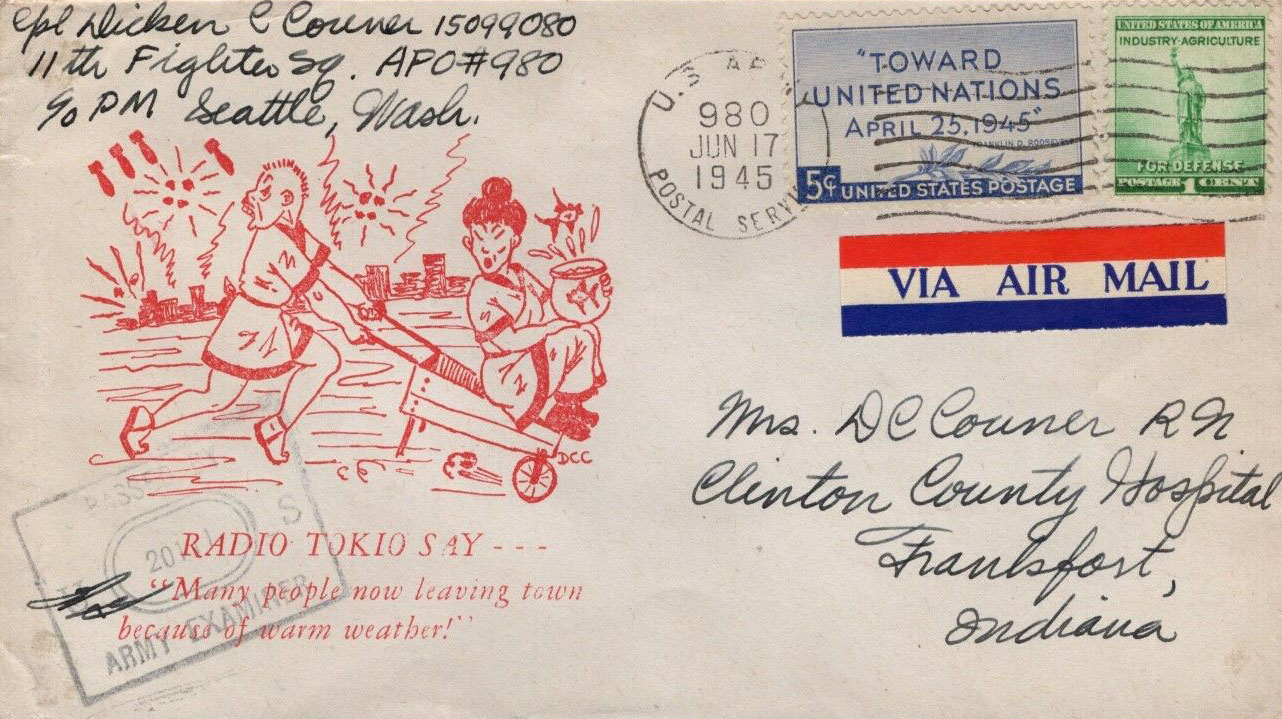 Cpl Dicken C Couner 15099080
11th Fighter Sq. APO#980
c/o PM Seattle, Wash.
U.S. AR
980
JUN 17
1945
POSTAL SERV
"TOWARD
UNITED NATIONS
APRIL 25, 1945"
FRANKLIN D. ROOSEVELT
5¢ UNITED STATES POSTAGE
UNITED STATES OF AMERICA
INDUSTRY-AGRICULTURE
FOR DEFENSE
POSTAGE 1 CENT
VIA AIR MAIL
Mrs. DC Couner RN
Clinton County Hospital
Frankfort,
Indiana
DCC
RADIO TOKIO SAY - - -
"Many people now leaving town
because of warm weather!"
S
ARMY EXAMINER